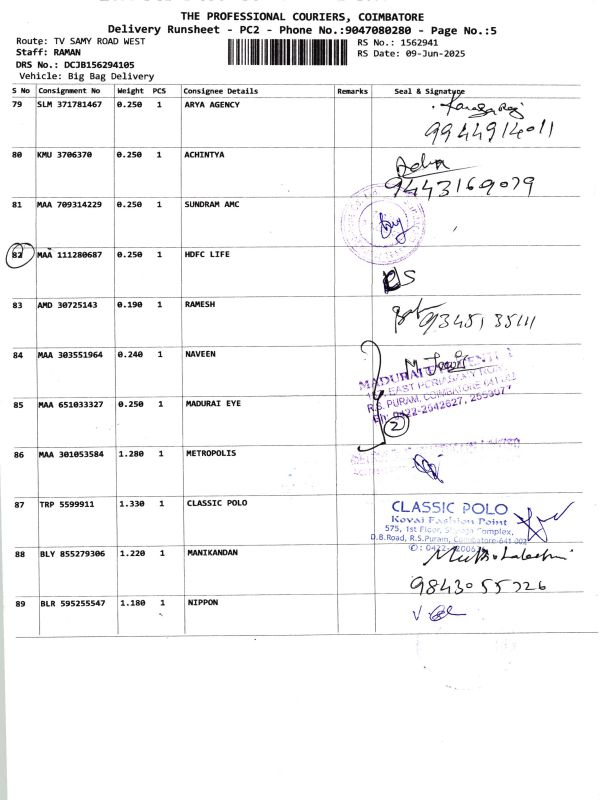 THE PROFESSIONAL COURIERS, COIMBATORE
Delivery Runsheet - PC2 - Phone No.:9047080280 - Page No.:5
Route: TV SAMY ROAD WEST
RS No.: 1562941
Staff: RAMAN
RS Date: 09-Jun-2025
DRS No.: DCJB156294105
Vehicle: Big Bag Delivery
S No Consignment No Weight PCS Consignee Details Remarks Seal & Signature
79 SLM 371781467 0.250 1 ARYA AGENCY
9944914011
80 KMU 3706370 0.250 1 ACHINTYA
9443169079
81 MAA 709314229 0.250 1 SUNDRAM AMC
82 MAA 111280687 0.250 1 HDFC LIFE
83 AMD 30725143 0.190 1 RAMESH
84 MAA 303551964 0.240 1 NAVEEN
85 MAA 651033327 0.250 1 MADURAI EYE
R.S. PURAM, COIMBATORE
2
86 MAA 301053584 1.280 1 METROPOLIS
87 TRP 5599911 1.330 1 CLASSIC POLO
CLASSIC POLO
Kovai Fashion Point
575, 1st Floor, Complex,
D.B.Road, R.S.Puram, Coimbatore-641 002
88 BLY 855279306 1.220 1 MANIKANDAN
9843055726
89 BLR 595255547 1.180 1 NIPPON